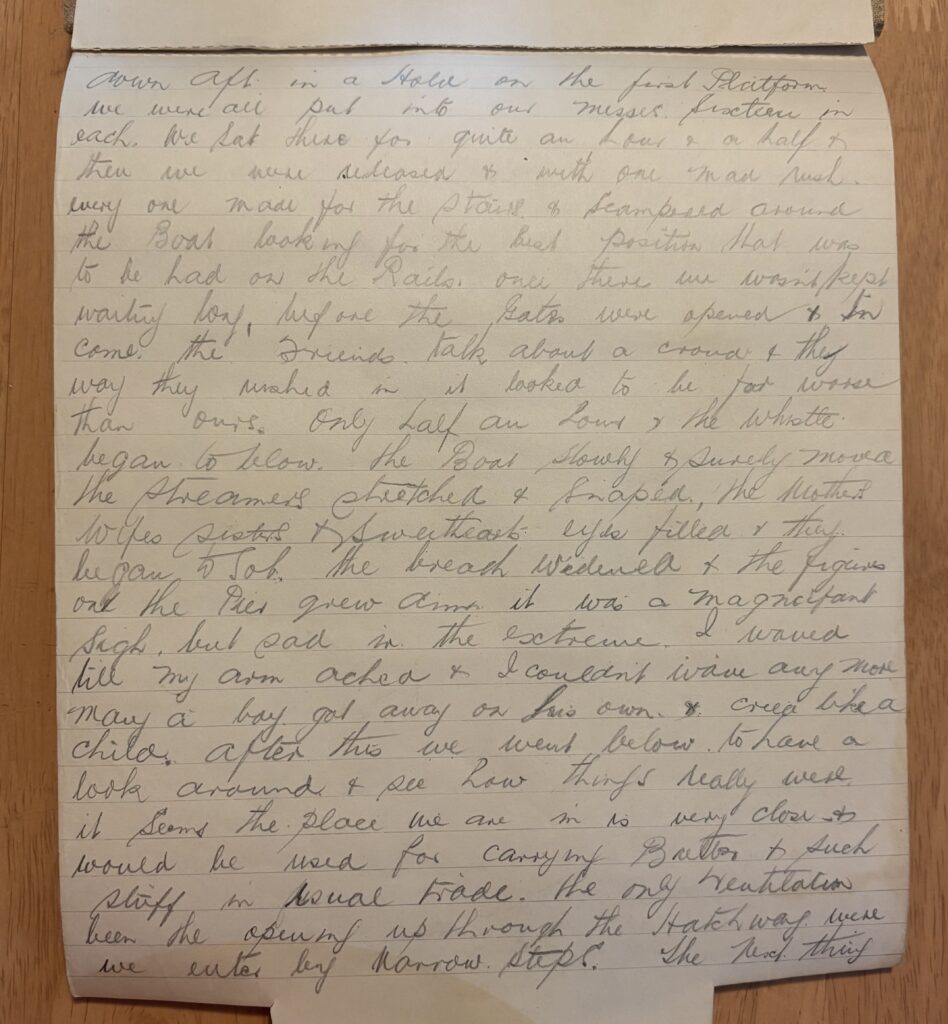 down aft. in a Hold on the first Platform.
we were all put into our messes. sixteen in
each. We Sat there for quite an hour & a half &
then we were released & with one mad rush.
every one made for the stairs. & Scampered around
the Boat looking for the best position that was
to be had on the Rails. once there we wasn't kept
waiting long, before the Gates were opened & In
come. the Friends. talk about a crowd & the
way they rushed in it looked to be far worse
than ours. Only half an hour & the whistle
began to blow. the Boat slowly & surely moved
the streamers stretched & Snaped., the Mothers
Wifes sisters & Sweethearts eyes filled & they.
began to Sob. the breach widened & the figures
on the Pier grew dim. it was a magnifant
sigh. but sad in the extreme. I waved
till my arm ached & I couldn't wave any more
Many a boy got away on his own. & cried like a
child. after this we went below. to have a
look around & see how things really were.
it Seems the place we are in is very close &
would be used for carrying Butter & such
stuff in usual trade. the only ventilation
been the opening up through the Hatchway were
we enter by Narrow Steps. The Next thing